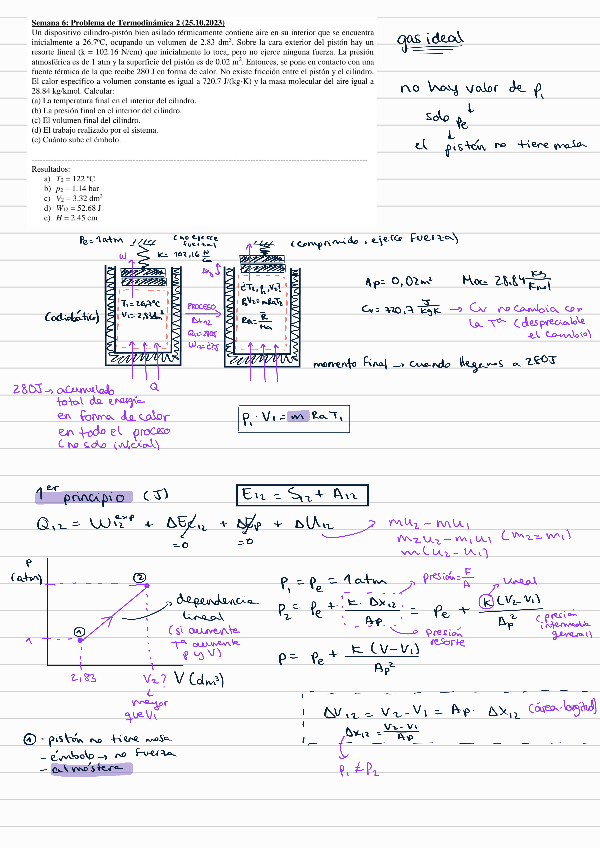 Semana 6: Problema de Termodinámica 2 (25.10.2023)
Un dispositivo cilindro-pistón bien aislado térmicamente contiene aire en su interior que se encuentra
inicialmente a 26.7ºC, ocupando un volumen de 2.83 dm³. Sobre la cara exterior del pistón hay un
resorte lineal (k = 102.16 N/cm) que inicialmente lo toca, pero no ejerce ninguna fuerza. La presión
atmosférica es de 1 atm y la superficie del pistón es de 0.02 m². Entonces, se pone en contacto con una
fuente térmica de la que recibe 280 J en forma de calor. No existe fricción entre el pistón y el cilindro.
El calor específico a volumen constante es igual a 720.7 J/(kg·K) y la masa molecular del aire igual a
28.84 kg/kmol. Calcular:
(a) La temperatura final en el interior del cilindro.
(b) La presión final en el interior del cilindro.
(c) El volumen final del cilindro.
(d) El trabajo realizado por el sistema.
(e) Cuánto sube el émbolo.
Resultados:
a) T₂ = 122 ºC
b) p₂ = 1.14 bar
c) V₂ = 3.32 dm³
d) W₁₂ = 52.68 J
e) H = 2.45 cm
gas ideal
no hay valor de p₁
↓
solo pe
↓
el pistón no tiene masa
Pe = 1 atm
(no ejerce fuerza)
K = 102,16 N/cm
W
(adiabático)
T₁ = 26,7ºC
V₁ = 2,83 dm³
PROCESO
Q
(comprimido, ejerce fuerza)
¿T₂, p₂, V₂?
P₂V₂ = mRaT₂
Ra = R/Ma
Ap = 0,02 m²
Ma = 28,84 kg/kmol
Cv = 720,7 J/kgK → Cv no cambia con
la Tª (despreciable
el cambio)
momento final → cuando llegamos a 280J
280J → acumulado
total de energía
en forma de calor
en todo el proceso
(no solo inicial)
P₁ · V₁ = m Ra T₁
1er principio (J)
E₁₂ = S₁₂ + A₁₂
Q₁₂ = W₁₂ᵉˣᵖ + ΔEc₁₂ + ΔEp + ΔU₁₂
=0
=0
mu₂ - mu₁
m₂u₂ - m₁u₁ (m₂ = m₁)
m(u₂ - u₁)
P
(atm)
1
①
②
2,83
V₂?
V (dm³)
↓
mayor
que V₁
dependencia
lineal
(si aumenta
Tª aumenta
p y V)
P₁ = Pe = 1 atm
presión = F/A
P₂ = Pe + K · Δx₁₂ / Ap = Pe + K (V₂ - V₁) / Ap²
lineal
presión
resorte
(presión
intermedia
general)
p = Pe + K (V - V₁) / Ap²
ΔV₁₂ = V₂ - V₁ = Ap · Δx₁₂ (área · longitud)
Δx₁₂ = V₂ - V₁ / Ap
P₁ ≠ P₂
① · pistón no tiene masa
- émbolo → no fuerza
- atmósfera